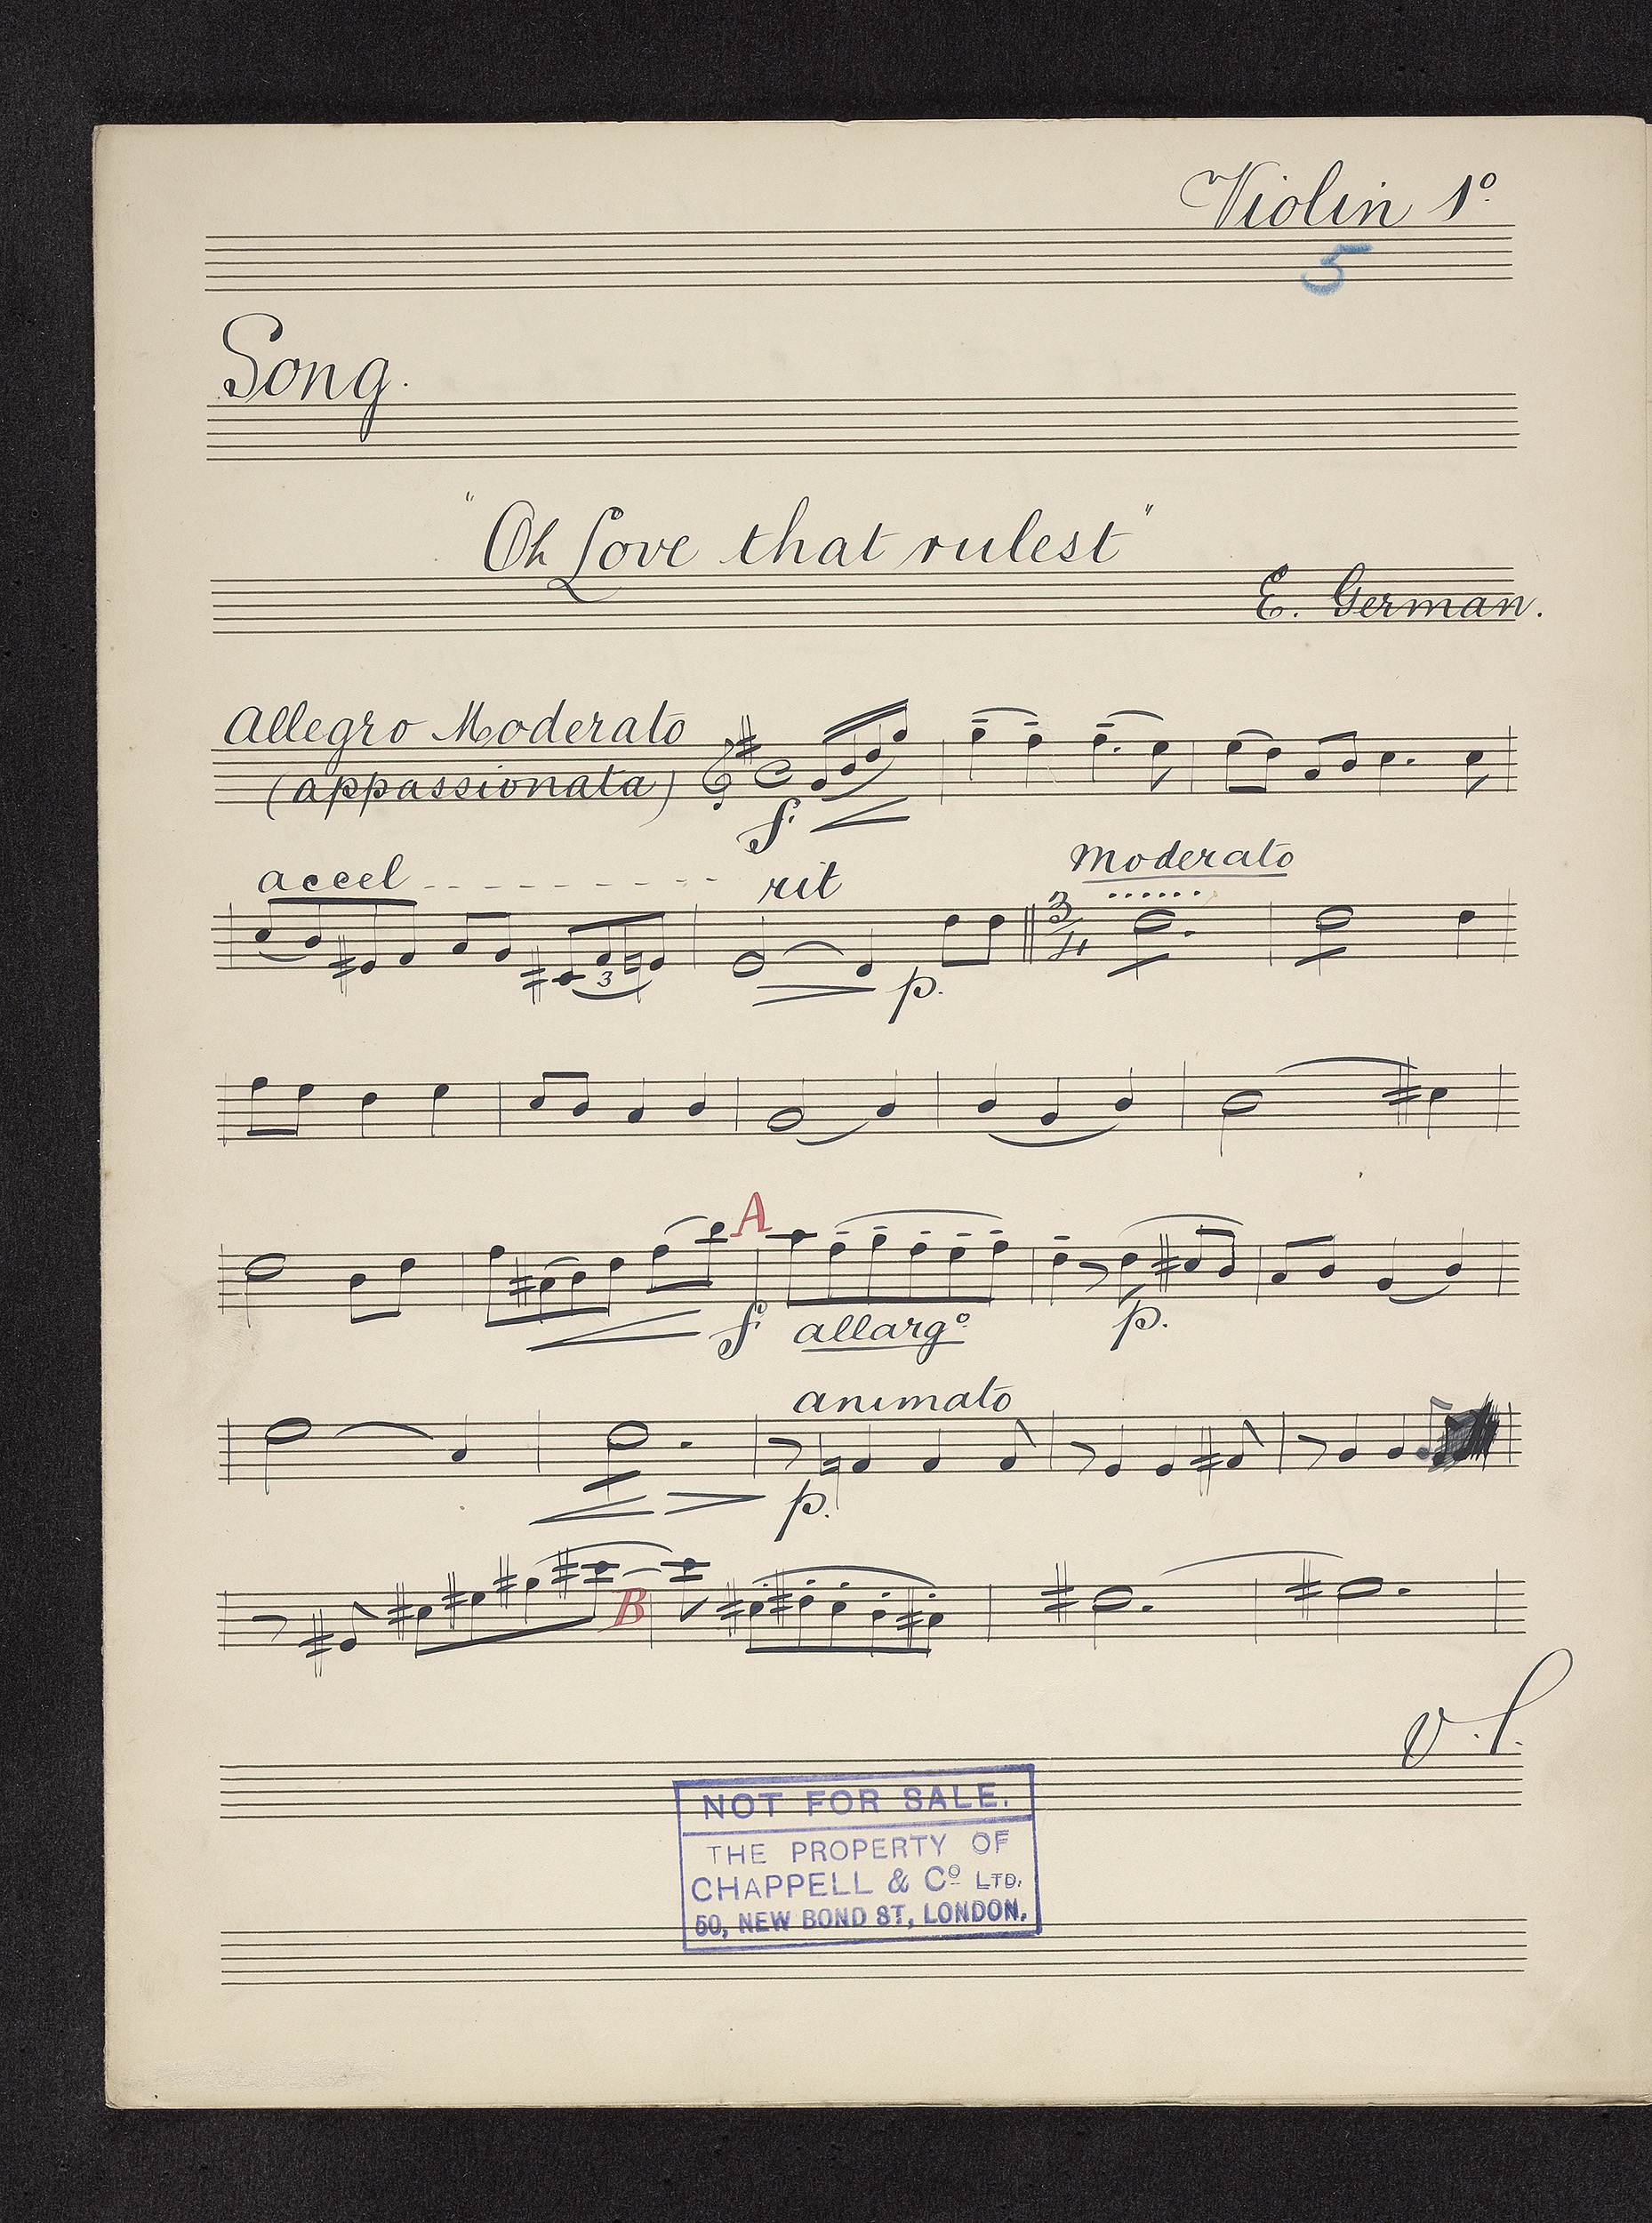 Violin 1º
5
Song.
"Oh Love that rulest"
E. German.
Allegro Moderato
(appassionata)
f.
accel - - - - - - - - - rit
Moderato
3
4
3
p.
A
f. allargº
p.
animato
p.
B
V.S.
NOT FOR SALE.
THE PROPERTY OF
CHAPPELL & Cº LTD.
50, NEW BOND ST, LONDON.